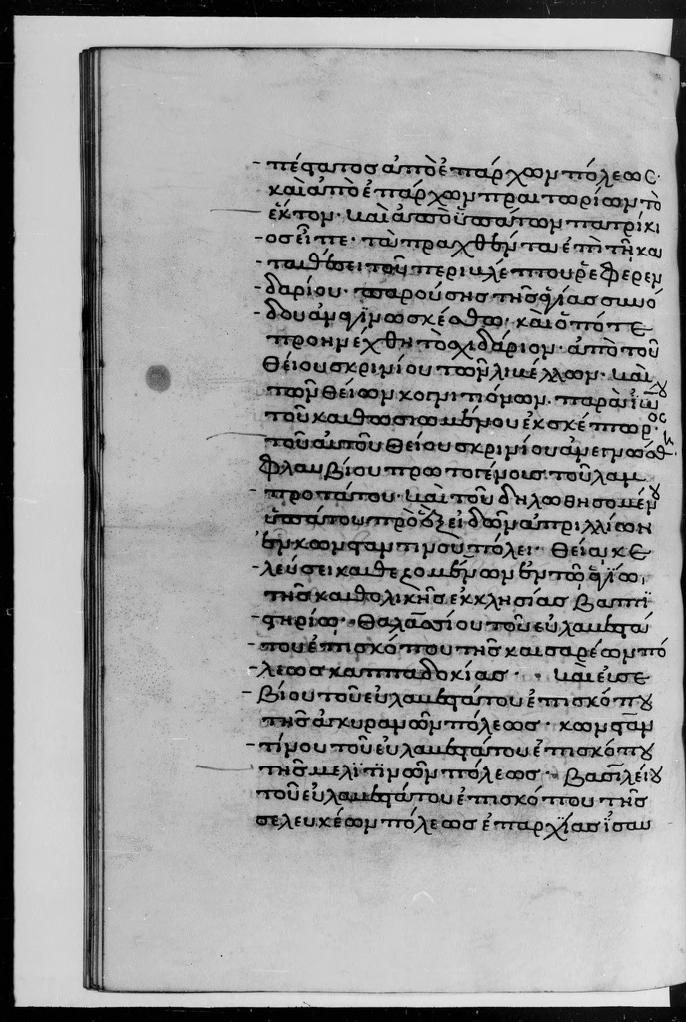 πέστατος ἀπὸ ἐπάρχων πόλεως·
καὶ ἀπὸ ἐπάρχων πραιτωρίων τὸ
ἕκτον· καὶ ἀπὸ ὑπάτων πατρίκι
ος εἶπε· τὰ πραχθέντα ἐπὶ τῆ κα
ταθέσει τοῦ περικλέπτου ῥεφερεν
δαρίου· παρούσης τῆς ἁγίας συνό
δου ἀναγινωσκέσθω· καὶ ὁπότε
προηνέχθη τὸ σχιδάριον· ἀπὸ τοῦ
θείου σκρινίου τῶν λιβέλλων· καὶ
τῶν θείων κογνιτιόνων· παρὰ
τοῦ καθωσιωμένου ἐκσκέπτωρος·
τοῦ αὐτοῦ θείου σκρινίου ἀνεγνώσθη
φλαβίου πρωτογένους τοῦ λαμ
προτάτου· καὶ τοῦ δηλωθησομένου
ὑπάτου πρὸ ἓξ εἰδῶν ἀπριλλίων
ἐν κωνσταντίνου πόλει· θεία κε
λεύσει καθεζομένων ἐν τῶ ἁγίω
τῆς καθολικῆς ἐκκλησίας βαπτι
στηρίω· θαλασσίου τοῦ εὐλαβεστά
του ἐπισκόπου τῆς καισαρέων πό
λεως καππαδοκίας· καὶ εὐσε
βίου τοῦ εὐλαβεστάτου ἐπισκόπου
τῆς ἀγκυρανῶν πόλεως· κωνσταν
τίνου τοῦ εὐλαβεστάτου ἐπισκόπου
τῆς μελιτινῶν πόλεως· βασιλείου
τοῦ εὐλαβεστάτου ἐπισκόπου τῆς
σελευκέων πόλεως ἐπαρχίας ἰσαυ